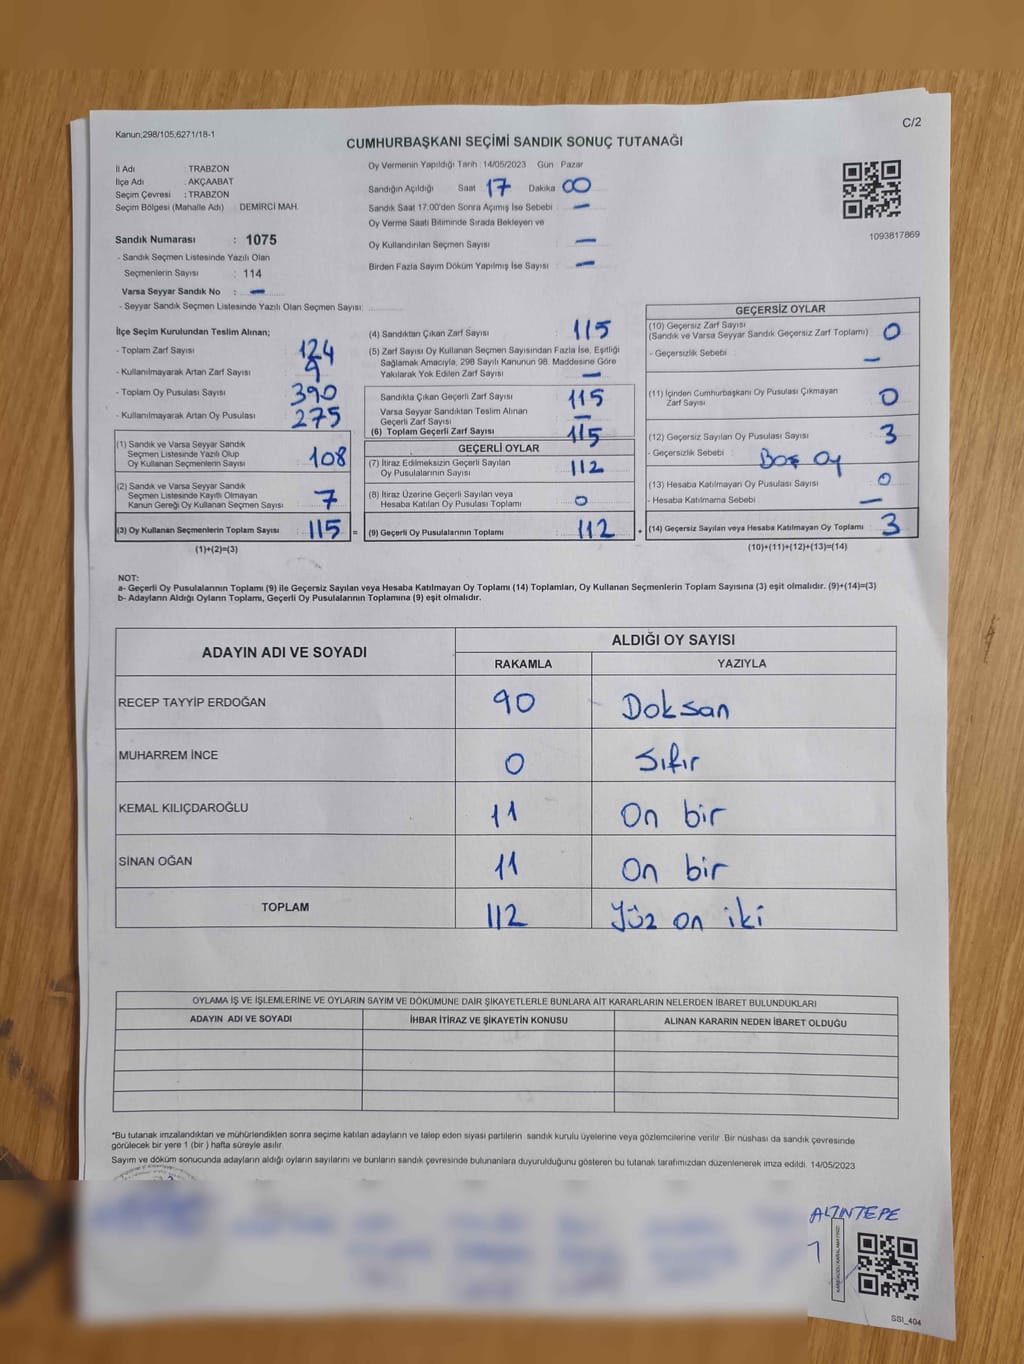 Kanun;298/105,6271/18-1
C/2
CUMHURBAŞKANI SEÇİMİ SANDIK SONUÇ TUTANAĞI
İl Adı : TRABZON
İlçe Adı : AKÇAABAT
Seçim Çevresi : TRABZON
Seçim Bölgesi (Mahalle Adı) DEMİRCİ MAH.
Sandık Numarası : 1075
- Sandık Seçmen Listesinde Yazılı Olan
Seçmenlerin Sayısı : 114
Varsa Seyyar Sandık No : —
- Seyyar Sandık Seçmen Listesinde Yazılı Olan Seçmen Sayısı:
Oy Vermenin Yapıldığı Tarih 14/05/2023 Gün Pazar
Sandığın Açıldığı Saat 17 Dakika 00
Sandık Saat 17:00'den Sonra Açımış İse Sebebi —
Oy Verme Saati Bitiminde Sırada Bekleyen ve
Oy Kullandırılan Seçmen Sayısı —
Birden Fazla Sayım Döküm Yapılmış İse Sayısı —
1093817869
İlçe Seçim Kurulundan Teslim Alınan;
- Toplam Zarf Sayısı 124
- Kullanılmayarak Artan Zarf Sayısı 9
- Toplam Oy Pusulası Sayısı 390
- Kullanılmayarak Artan Oy Pusulası 275
(1) Sandık ve Varsa Seyyar Sandık
Seçmen Listesinde Yazılı Olup
Oy Kullanan Seçmenlerin Sayısı 108
(2) Sandık ve Varsa Seyyar Sandık
Seçmen Listesinde Kayıtlı Olmayan
Kanun Gereği Oy Kullanan Seçmen Sayısı 7
(3) Oy Kullanan Seçmenlerin Toplam Sayısı : 115 =
(1)+(2)=(3)
(4) Sandıktan Çıkan Zarf Sayısı : 115
(5) Zarf Sayısı Oy Kullanan Seçmen Sayısından Fazla İse, Eşitliği
Sağlamak Amacıyla, 298 Sayılı Kanunun 98. Maddesine Göre
Yakılarak Yok Edilen Zarf Sayısı —
Sandıkta Çıkan Geçerli Zarf Sayısı 115
Varsa Seyyar Sandıktan Teslim Alınan
Geçerli Zarf Sayısı —
(6) Toplam Geçerli Zarf Sayısı 115
GEÇERLİ OYLAR
(7) İtiraz Edilmeksizin Geçerli Sayılan
Oy Pusulalarının Sayısı 112
(8) İtiraz Üzerine Geçerli Sayılan veya
Hesaba Katılan Oy Pusulası Toplamı 0
(9) Geçerli Oy Pusulalarının Toplamı : 112 +
GEÇERSİZ OYLAR
(10) Geçersiz Zarf Sayısı
(Sandık ve Varsa Seyyar Sandık Geçersiz Zarf Toplamı) 0
- Geçersizlik Sebebi —
(11) İçinden Cumhurbaşkanı Oy Pusulası Çıkmayan
Zarf Sayısı 0
(12) Geçersiz Sayılan Oy Pusulası Sayısı 3
- Geçersizlik Sebebi Boş Oy
(13) Hesaba Katılmayan Oy Pusulası Sayısı 0
- Hesaba Katılmama Sebebi —
(14) Geçersiz Sayılan veya Hesaba Katılmayan Oy Toplamı : 3
(10)+(11)+(12)+(13)=(14)
NOT:
a- Geçerli Oy Pusulalarının Toplamı (9) ile Geçersiz Sayılan veya Hesaba Katılmayan Oy Toplamı (14) Toplamları, Oy Kullanan Seçmenlerin Toplam Sayısına (3) eşit olmalıdır. (9)+(14)=(3)
b- Adayların Aldığı Oyların Toplamı, Geçerli Oy Pusulalarının Toplamına (9) eşit olmalıdır.
ADAYIN ADI VE SOYADI
ALDIĞI OY SAYISI
RAKAMLA YAZIYLA
RECEP TAYYİP ERDOĞAN 90 Doksan
MUHARREM İNCE 0 Sıfır
KEMAL KILIÇDAROĞLU 11 On bir
SİNAN OĞAN 11 On bir
TOPLAM 112 Yüz on iki
OYLAMA İŞ VE İŞLEMLERİNE VE OYLARIN SAYIM VE DÖKÜMÜNE DAİR ŞİKAYETLERLE BUNLARA AİT KARARLARIN NELERDEN İBARET BULUNDUKLARI
ADAYIN ADI VE SOYADI İHBAR İTİRAZ VE ŞİKAYETİN KONUSU ALINAN KARARIN NEDEN İBARET OLDUĞU
*Bu tutanak imzalandıktan ve mühürlendikten sonra seçime katılan adayların ve talep eden siyasi partilerin sandık kurulu üyelerine veya gözlemcilerine verilir. Bir nüshası da sandık çevresinde
görülecek bir yere 1 (bir ) hafta süreyle asılır.
Sayım ve döküm sonucunda adayların aldığı oyların sayılarını ve bunların sandık çevresinde bulunanlara duyurulduğunu gösteren bu tutanak tarafımızdan düzenlenerek imza edildi. 14/05/2023
ALTINTEPE
1
SSI_404